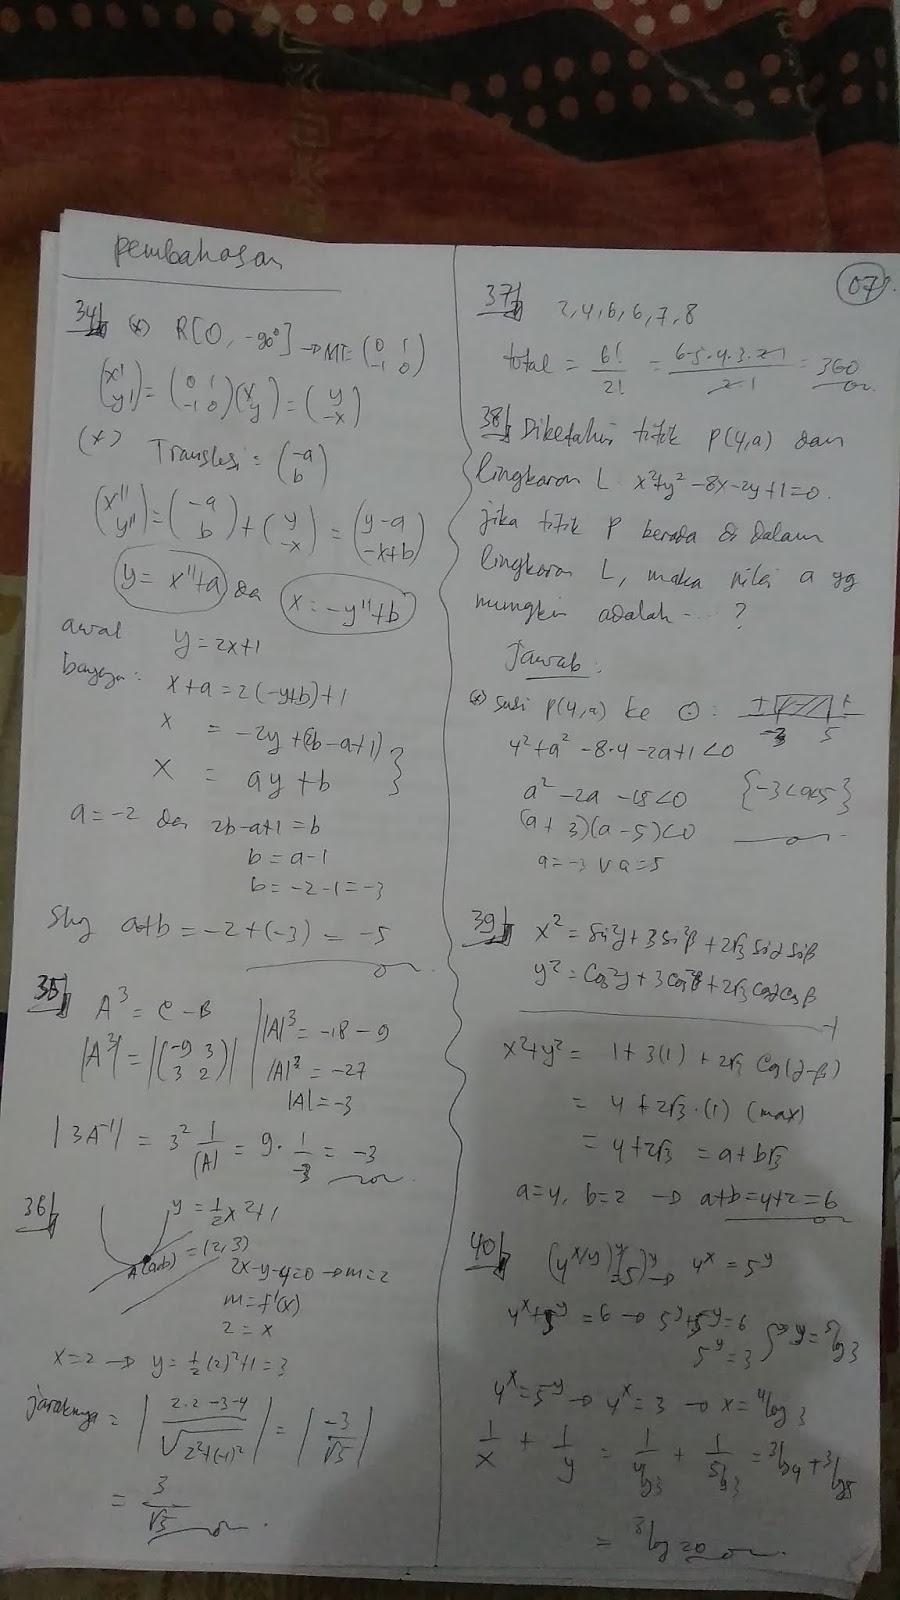 pembahasan
34) (*) R[O, -90°] → MT = (0 1 / -1 0)
(x' / y') = (0 1 / -1 0)(x / y) = (y / -x)
(*) Translasi = (-a / b)
(x'' / y'') = (-a / b) + (y / -x) = (y-a / -x+b)
y = x''+a da x = -y''+b
awal y = 2x+1
x+a = 2(-y+b)+1
x = -2y+(2b-a+1)
x = ay+b
a = -2 dan 2b-a+1 = b
b = a-1
b = -2-1 = -3
Shg a+b = -2+(-3) = -5
35) A³ = C - B
|A³| = |(-9 3 / 3 2)|
|A|³ = -18 - 9
|A|³ = -27
|A| = -3
|3A⁻¹| = 3² 1/|A| = 9 · 1/-3 = -3
36) y = ½x²+1
A(a,b) = (2,3)
2x-y-4=0 → m=2
m = f'(x)
2 = x
x=2 → y = ½(2)²+1 = 3
jaraknya = |2·2-3-4 / √2²+(-1)²| = |-3/√5|
= 3/√5
07
37) 2,4,6,6,7,8
total = 6!/2! = 6·5·4·3·2·1/2·1 = 360
38) Diketahui titik P(4,a) dan
lingkaran L x²+y²-8x-2y+1=0.
jika titik P berada di dalam
lingkaran L, maka nilai a yg
mungkin adalah ....?
Jawab:
(*) Subs P(4,a) ke ⊙: + - + -3 5
4²+a²-8·4-2a+1<0
a²-2a-15<0 {-3<a<5}
(a+3)(a-5)<0
a=-3 ∨ a=5
39) x² = Sin²α+3Sin²β+2√3 Sinα Sinβ
y² = Cos²α+3Cos²β+2√3 Cosα Cosβ
+
x²+y² = 1+3(1)+2√3 Cos(α-β)
= 4+2√3·(1) (max)
= 4+2√3 = a+b√3
a=4, b=2 → a+b=4+2=6
40) (4^(x/y))^y = (5)^y → 4^x = 5^y
4^x+5^y = 6 → 5^y+5^y=6
5^y=3 } → y = ⁵log 3
4^x=5^y → 4^x=3 → x = ⁴log 3
1/x + 1/y = 1/⁴log 3 + 1/⁵log 3 = ³log 4 + ³log 5
= ³log 20